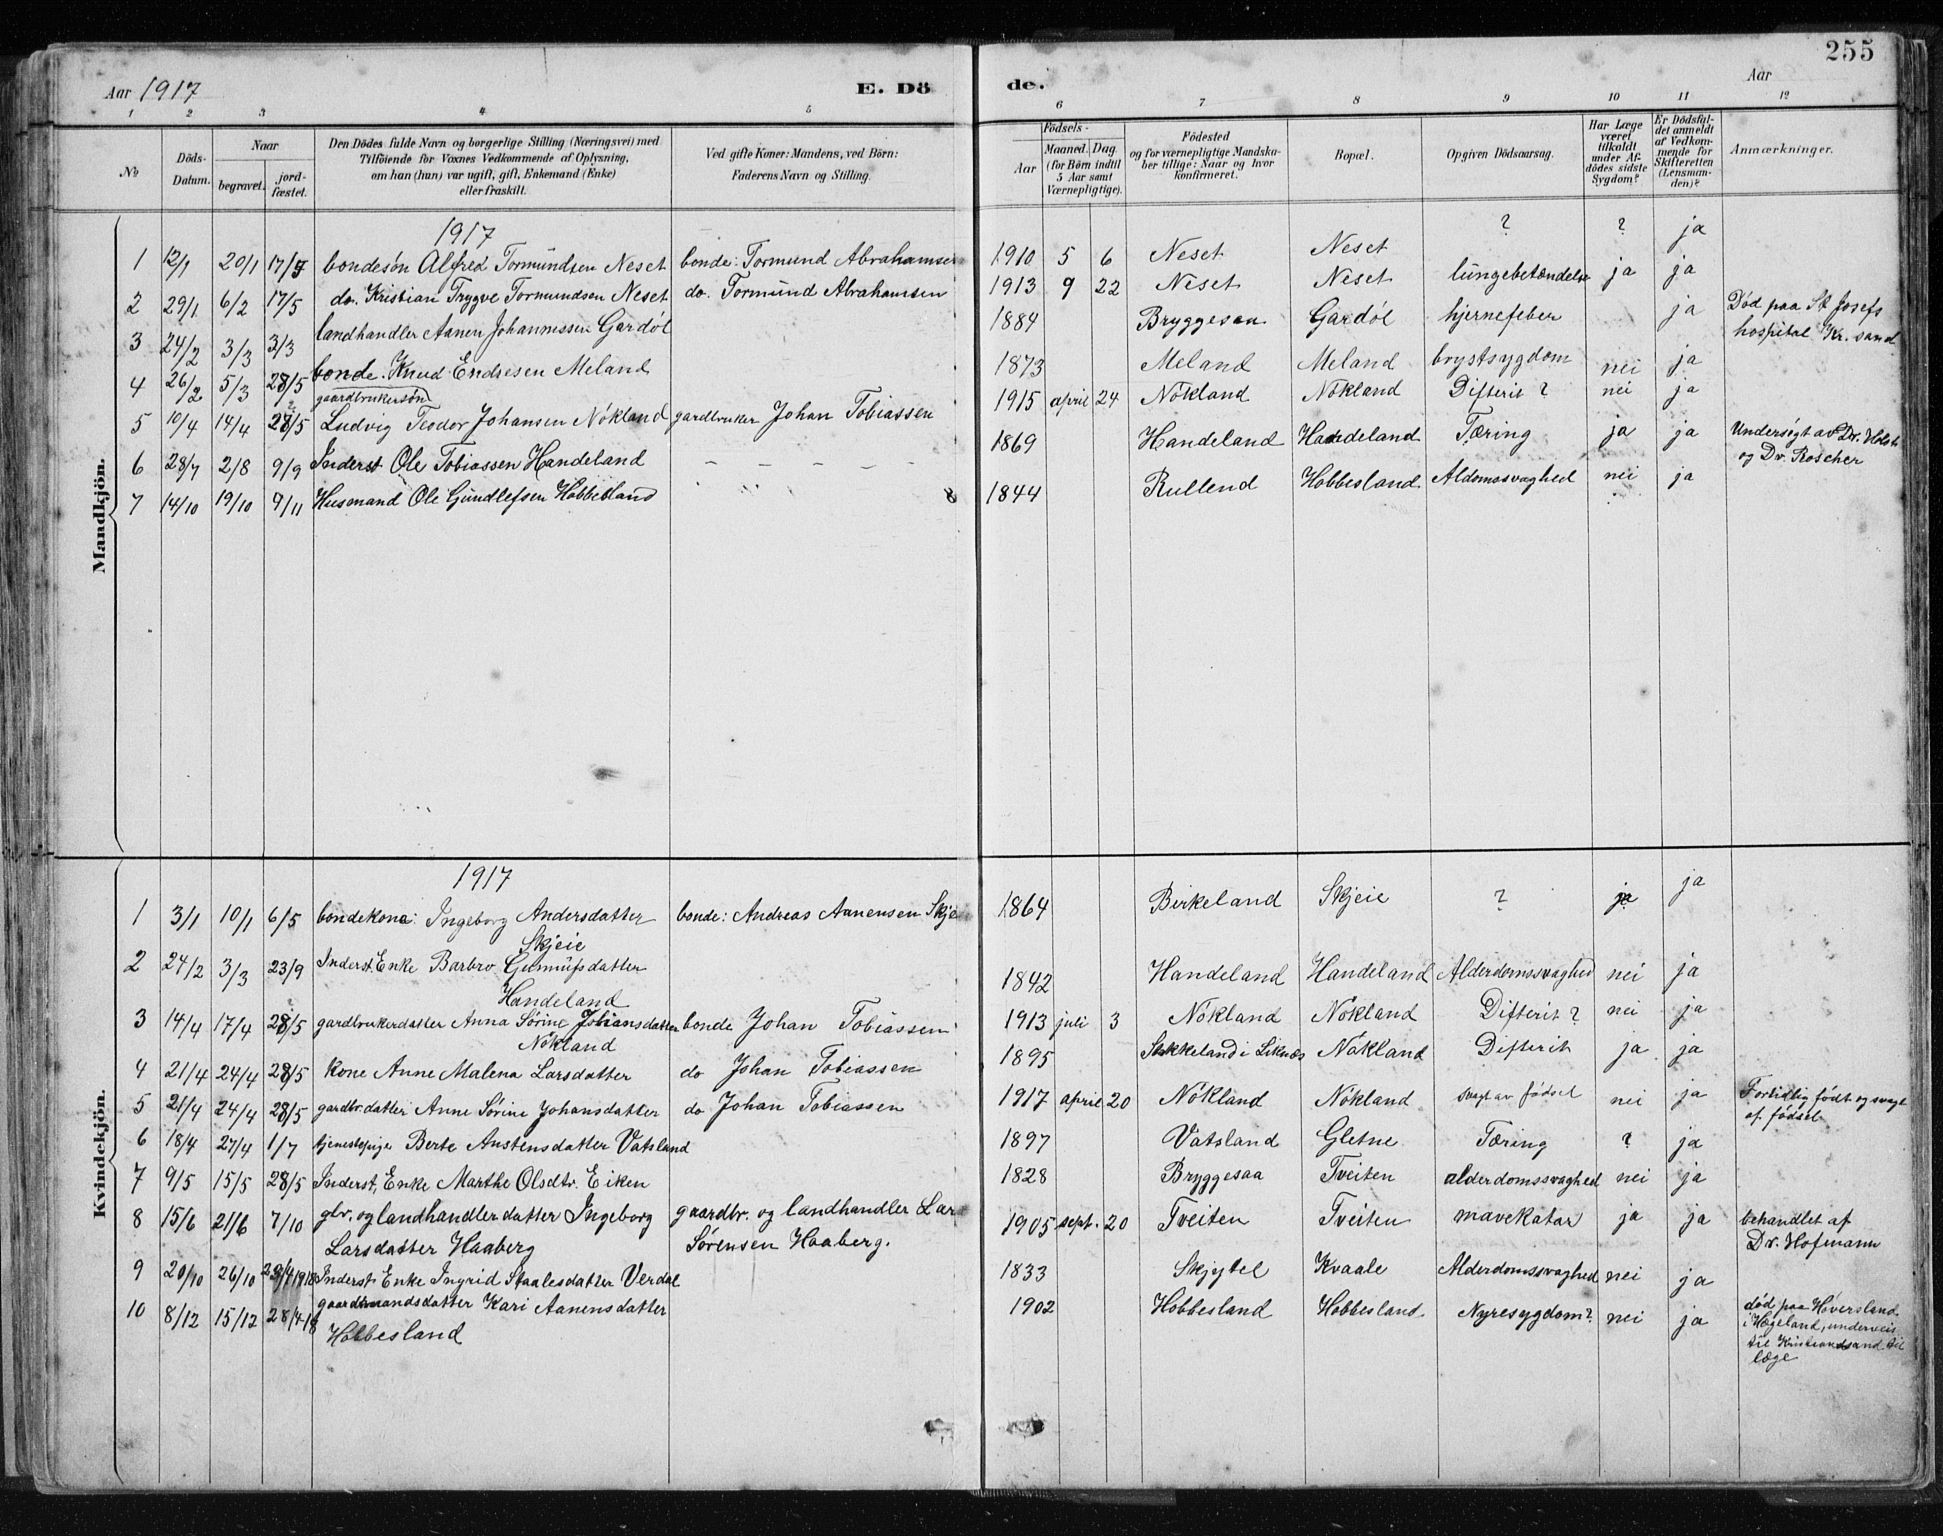 255
Aar 1917
E. Dö
de.
Aar
1 2 3 4 5 6 7 8 9 10 11 12
No
Döds-Datum.
Naar
begravet.
jord-fæstet.
Den Dödes fulde Navn og borgerlige Stilling (Næringsvei) med
Tilföiende for Voxnes Vedkommende af Oplysning,
om han (hun) var ugift, gift, Enkemand (Enke)
eller fraskilt.
Ved gifte Koner: Mandens, ved Börn:
Faderens Navn og Stilling.
Födsels-
Aar
Maaned. Dag.
(for Börn indtil
5 Aar samt
Værnepligtige).
Födested
og for værnepligtige Mandska-
ber tillige: Naar og hvor
konfirmeret.
Bopæl.
Opgiven Dödsaarsag.
Har Læge
været
tilkaldt
under Af-
dödes sidste
Sygdom?
Er Dödsfal-
det anmeldt
af Vedkom-
mende for
Skifteretten
(Lensman-
den)?
Anmærkninger.
Mandkjön.
1917
1 12/1 20/1 17/5 bondesön Alfred Tormundsen Neset bonde: Tormund Abrahamsen 1910 5 6 Neset Neset ? ? ja
2 29/1 6/2 17/5 do. Kristian Trygve Tormundsen Neset do. Tormund Abrahamsen 1913 9 22 Neset Neset lungebetændelse ja ja
3 24/2 3/3 3/3 landhandler Aanen Johannessen Gardöl 1884 Bryggesaa Gardöl hjernefeber ja Död paa St. Josefs
hospital Kr.sand
4 26/2 5/3 28/5 bonde. Knud Endresen Meland 1873 Meland Meland brystsygdom nei ja
gaardbrukersön
5 10/4 14/4 28/5 Ludvig Teodor Johansen Nökland gardbruker Johan Tobiassen 1915 april 24 Nökland Nökland Difterit ? nei ja
6 28/7 2/8 9/9 Inderst Ole Tobiassen Handeland – – – – – 1869 Handeland Handeland Tæring ja ja Undersögt av Dr. Holst
og Dr. Roscher
7 14/10 19/10 9/11 Husmand Ole Gundlefsen Hobbesland 1844 Rullend Hobbesland Aldomssvaghed nei ja
Kvindekjön.
1917
1 3/1 10/1 6/5 bondekona: Ingeborg Andersdatter bonde: Andreas Aanensen Skje 1864 Birkeland Skjeie ? ja ja
Skjeie
2 24/2 3/3 23/9 Inderst. Enke Barbro Gunnufsdatter 1842 Handeland Handeland Alderdomssvaghed nei ja
Handeland
3 14/4 17/4 28/5 gardbrukerdatter Anna Sörine Johansdatter bonde Johan Tobiassen 1913 juli 3 Nökland Nökland Difterit ? nei ja
Nökland
4 21/4 24/4 28/5 kone Anne Malena Larsdatter do Johan Tobiassen 1895 Stakkeland i Liknes Nökland Difterit ja ja
5 21/4 24/4 28/5 gardbr.datter Anne Sörine Johansdatter do Johan Tobiassen 1917 april 20 Nökland Nökland svagt av födsel nei ja Fortidlig födt og svagt
af födsel
6 18/4 27/4 1/7 tjenestepige Berte Austensdatter Vatsland 1897 Vatsland Gletne Tæring ? ja
7 9/5 15/5 28/5 Inderst, Enke Marthe Olsdtr. Eiken 1828 Bryggesaa Tveiten alderdomssvaghed nei ja
8 15/6 21/6 7/10 gbr. og landhandler datter Ingeborg gaardbr. og landhandler Lars 1905 sept. 20 Tveiten Tveiten mavekatar ja ja behandlet af
Larsdatter Haaberg Sörensen Haaberg. Dr. Hofmann
9 20/10 26/10 28/4 1918 Inderst Enke Ingrid Staalesdatter Verdal 1833 Skjytel Kvaale Alderdomssvaghed nei ja
10 8/12 15/12 28/4 18 gaardmandsdatter Kari Aanensdatter 1902 Hobbesland Hobbesland Nyresygdom? nei ja död paa Höversland
Hobbesland i Hægeland, underveis
til Kristiansand til
læge